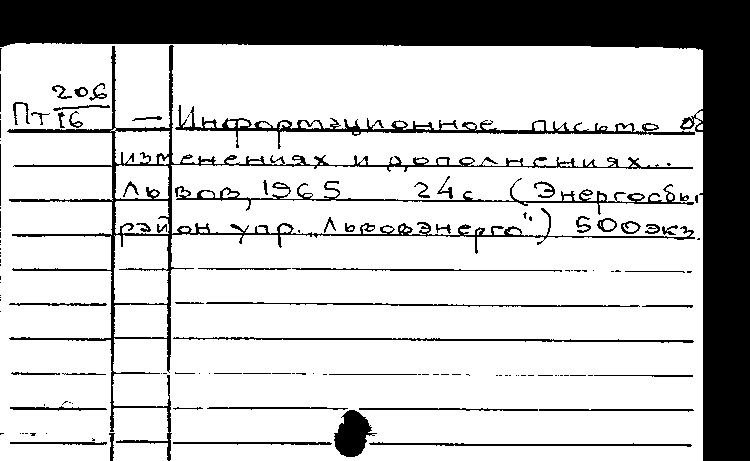 Пт 206/16 — Информационное письмо об
изменениях и дополнениях...
Львов, 1965. 24с. (Энергосбыт
район. упр. „Львовэнерго") 500экз.